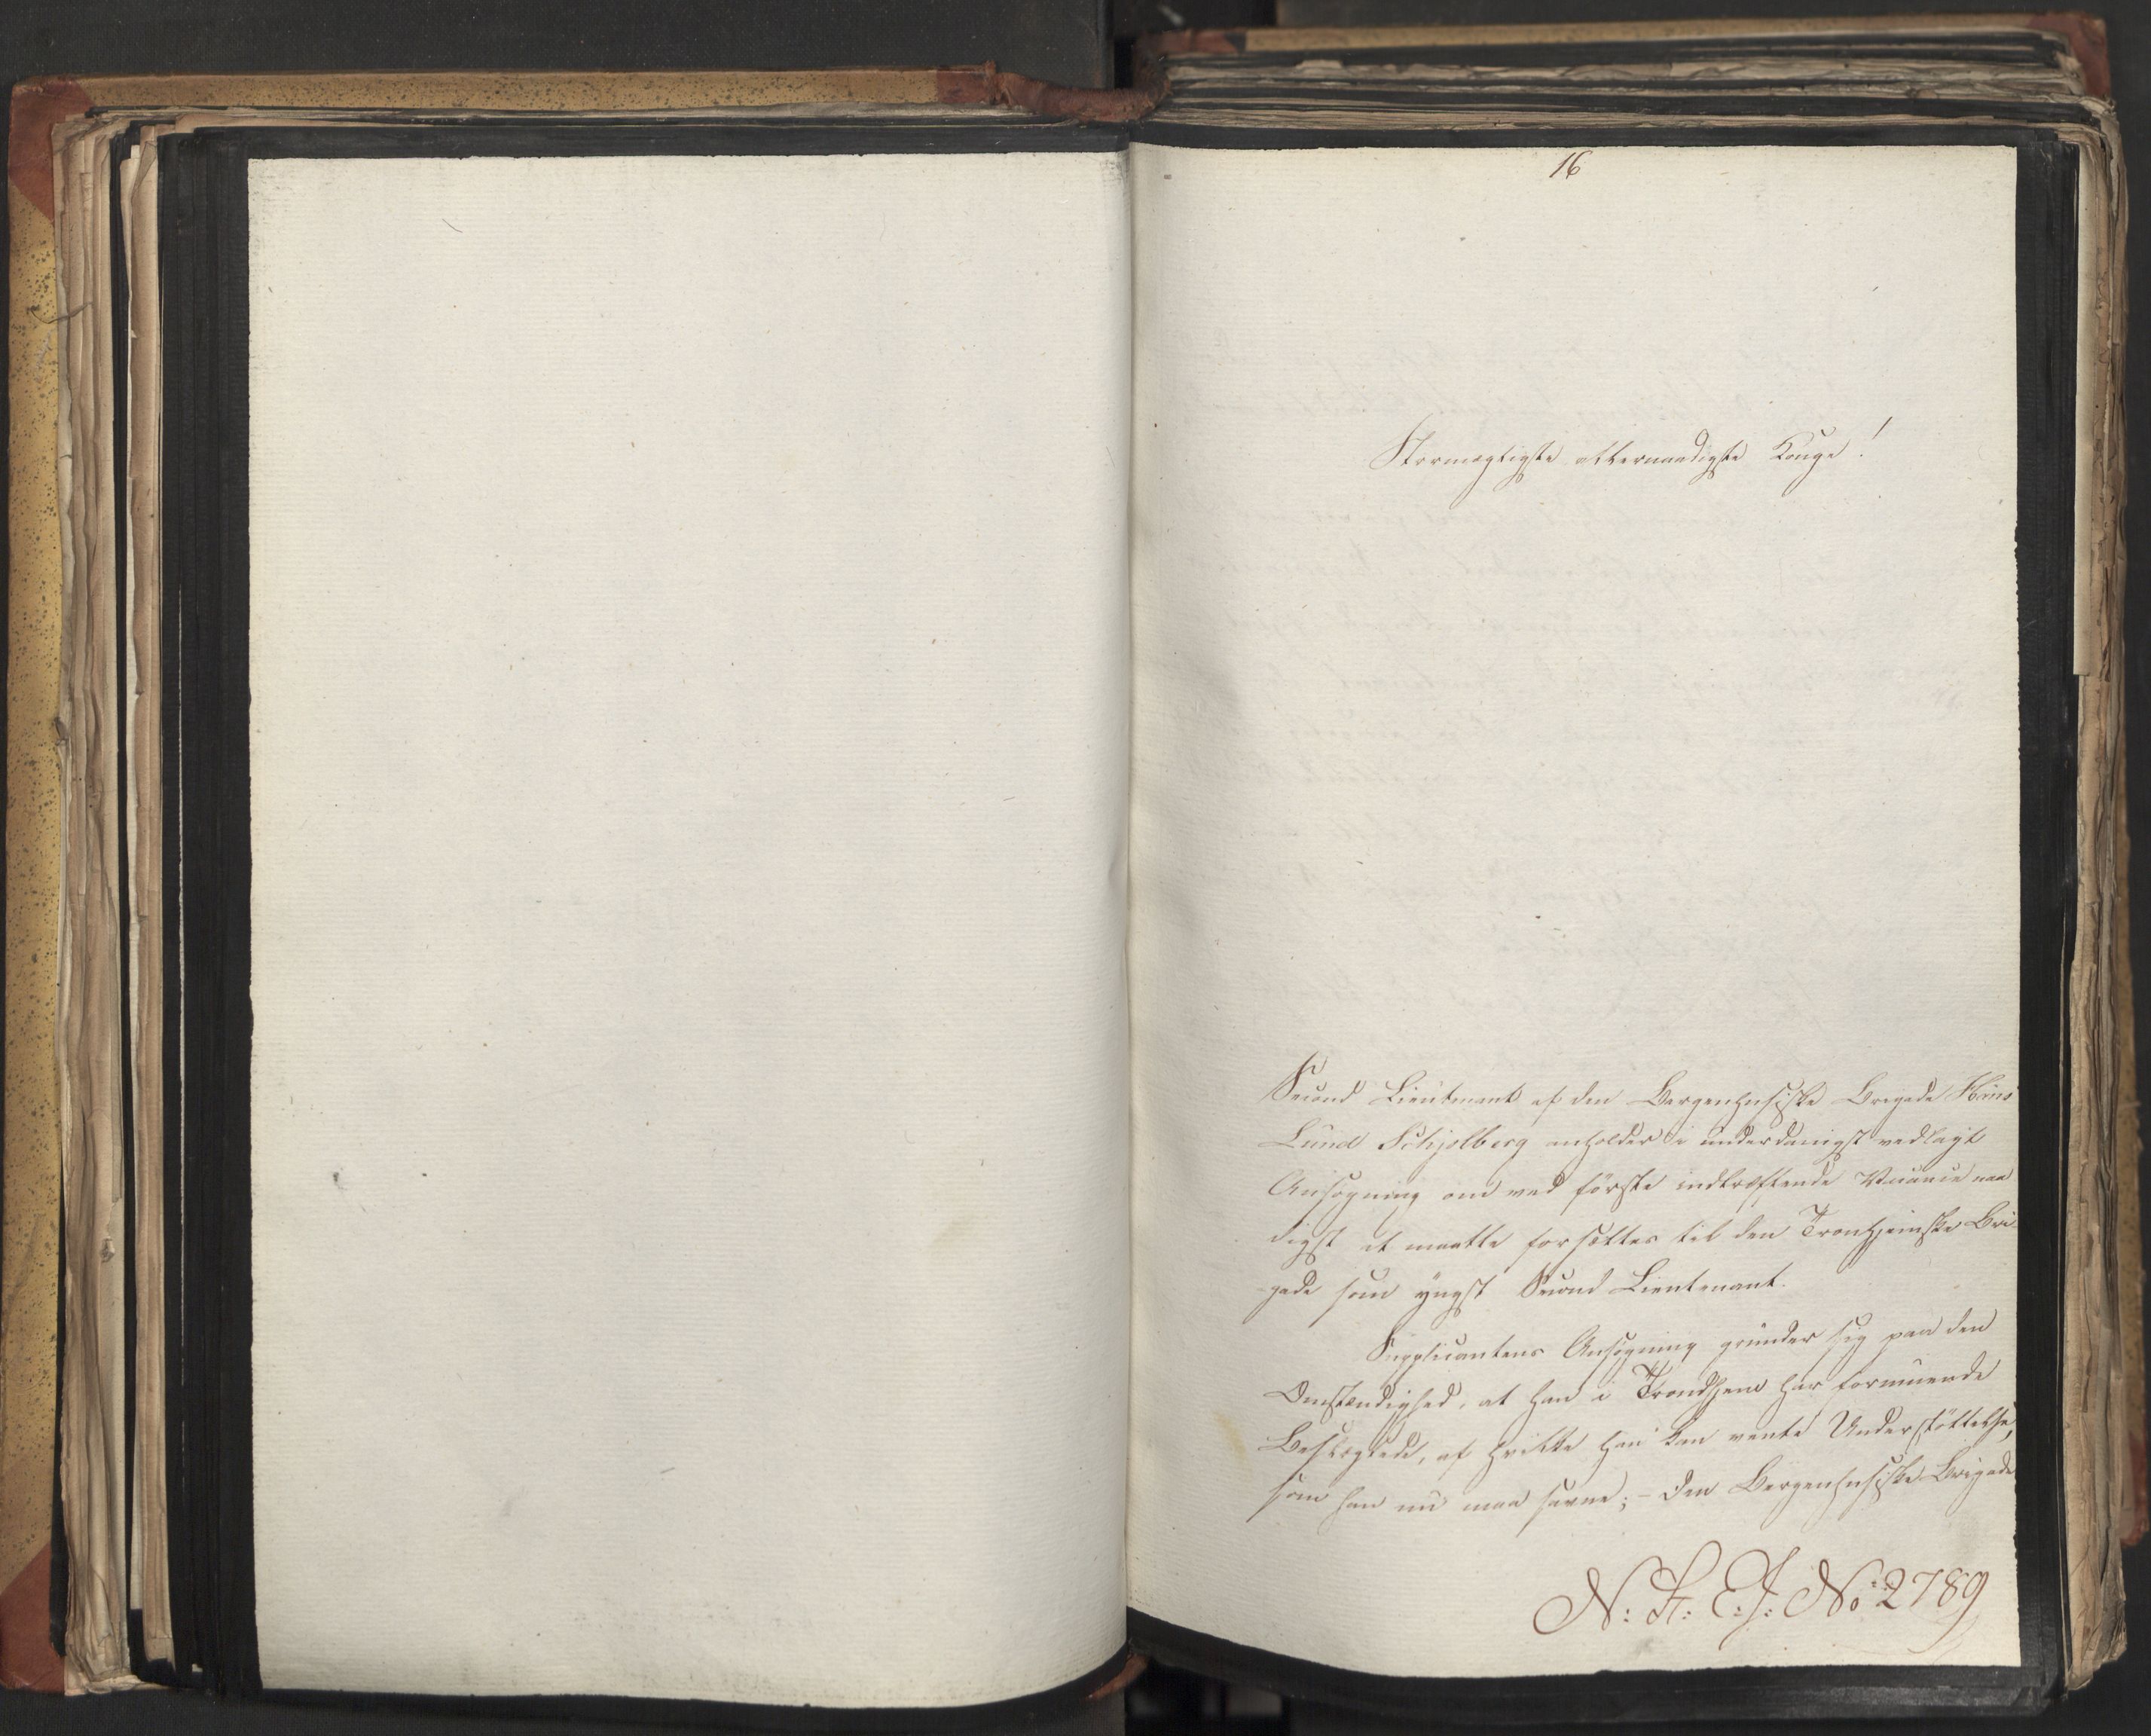 16
Stormægtigste allernaadigste Konge!
Second Lieutenant af den Bergenhusiske Brigade Hans
Lund Schjelberg anholder i underdanigst vedlagt
Ansøgning om ved første indtræffende Vacance naa
digst at maatte forsættes til den Tronhjemske Bri-
gade som yngst Second Lieutenant.
Supplicantens Ansøgning grunder sig paa den
Omstændighed, at han i Trondhjem har formuende
Beslægtede, af hvilke han kan vente Understøttelse,
som han nu maa savne; - Den Bergenhusiske Brigade
N: H: E: J: No 2789